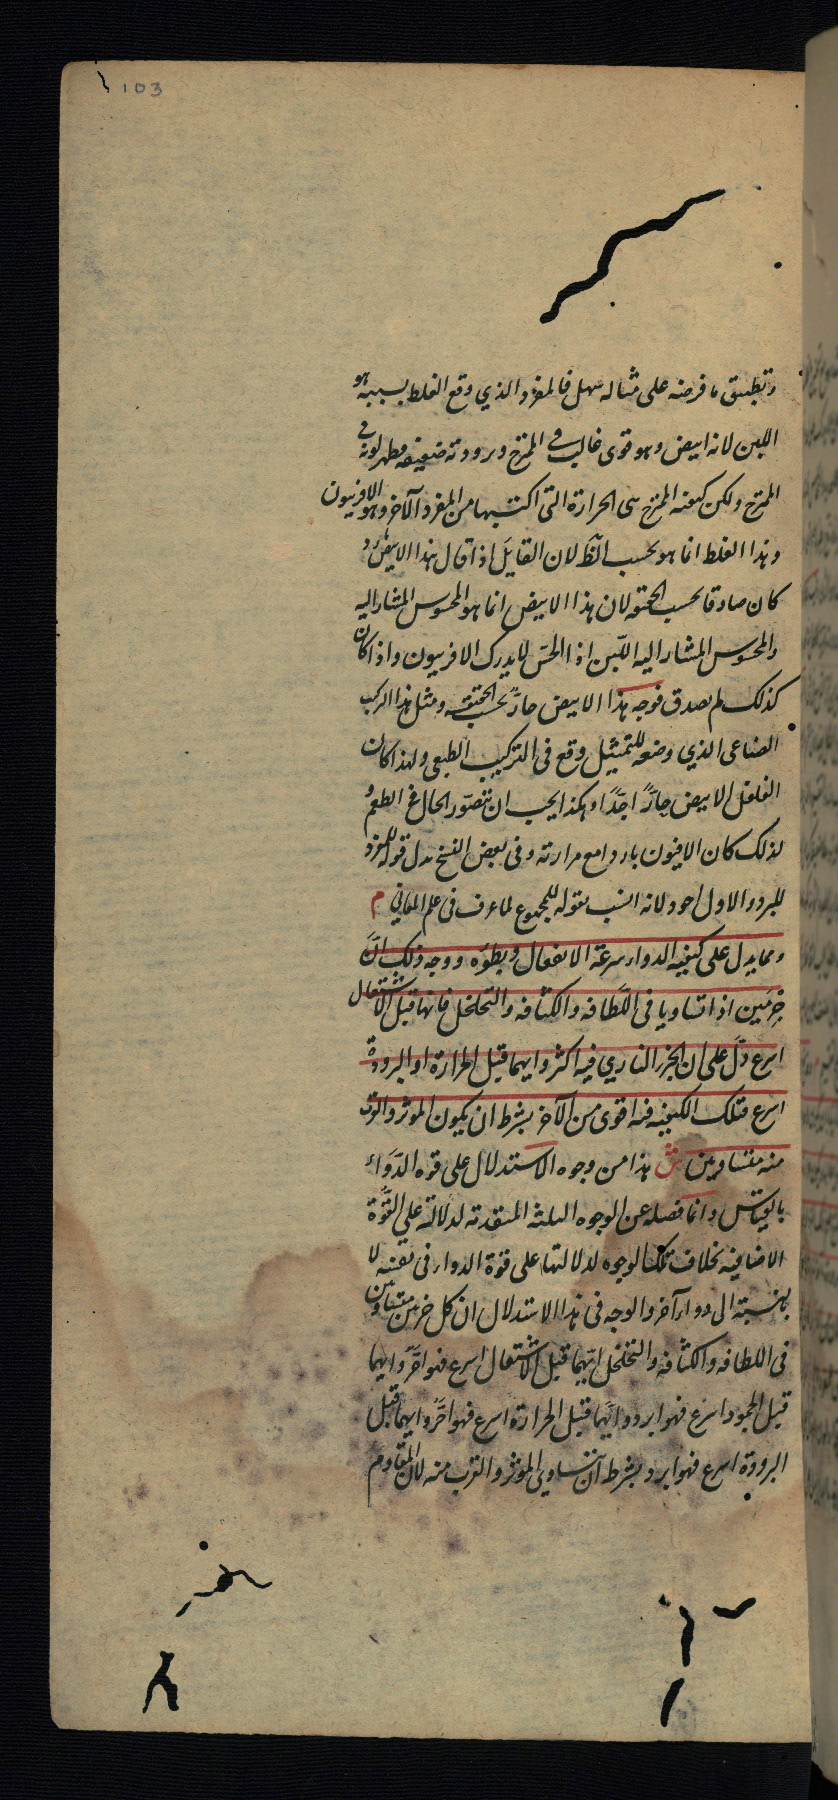 103
وتطبيق ما فرضه على مثاله سهل فالمفرد الذي وقع الغلط بسببه هو
اللبن لانه ابيض وهو قوى غالب في الممتزج وبرودته ضعيفه فظهر لونه في
الممتزج ولكن كيفيه الممتزج هى الحرارة التى اكتسبها من المفرد الآخر وهو الافربيون
وهذا الغلط انما هو بحسب الظ لان القايل اذا قال هذا الابيض
كان صادقا بحسب الحقيقه لان هذا الابيض انما هو المحسوس المشار اليه
والمحسوس المشار اليه اللبن اذ الحس لا يدرك الافربيون واذا كان
كذلك لم يصدق قوله هذا الابيض حار بحسب الحقيقه ومثل هذا التركيب
الصناعى الذي وضعه للتمثيل وقع فى التركيب الطبيعى ولهذا كان
الفلفل الابيض حارًا جدًا وهكذا يجب ان تتصور الحال فى الطعم و
لذلك كان الافيون بارد امع مرارته وفى بعض النسخ بدل قوله للمفرد
للبرد والاول اجود لانه انسب بقوله للمجموع لما عرف فى علم المعاني م
ومما يدل على كيفيه الدواء سرعة الانفعال وبطؤه ووجه ذلك انّ
جرمين اذا تساويا فى اللطافه والكثافه والتخلخل فانها قبل الاشتعال
اسرع دلّ على ان الجزء الناري فيه اكثر وايهما قبل الحرارة او البرودة
اسرع فتلك الكيفيه فيه اقوى من الآخر بشرط ان يكون الموثر والقرب
منه متساويين ش هذا من وجوه الاستدلال على قوه الدواء
بالقياس وانما فصله عن الوجوه الثلثه المتقدمه لدلالته على القوة
الاضافيه بخلاف تلك الوجوه لدلالتها على قوة الدواء فى نفسه لا
بالنسبة الى دواء آخر والوجه فى هذا الاستدلال ان كل جرمين متساويين
فى اللطافه والكثافه والتخلخل ايهما قبل الاشتعال اسرع فهو احر وايهما
قبل الجمود اسرع فهو ابرد وايهما قبل الحرارة اسرع فهو احر وايهما قبل
البرودة اسرع فهو ابرد بشرط ان تساوى الموثر والقرب منه لان المقاوم